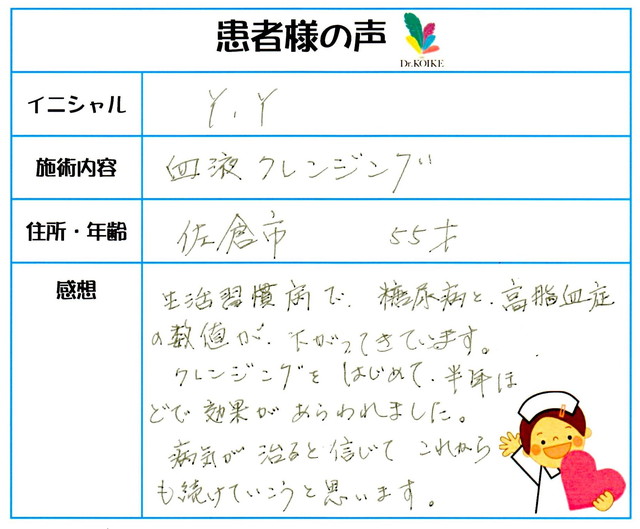 患者様の声
Dr.KOIKE
イニシャル
Y.Y
施術内容
血液クレンジング
住所・年齢
佐倉市 55才
感想
生活習慣病で、糖尿病と、高脂血症
の数値が、下がってきています。
クレンジングをはじめて、半年ほ
どで効果があらわれました。
病気が治ると信じてこれから
も続けていこうと思います。